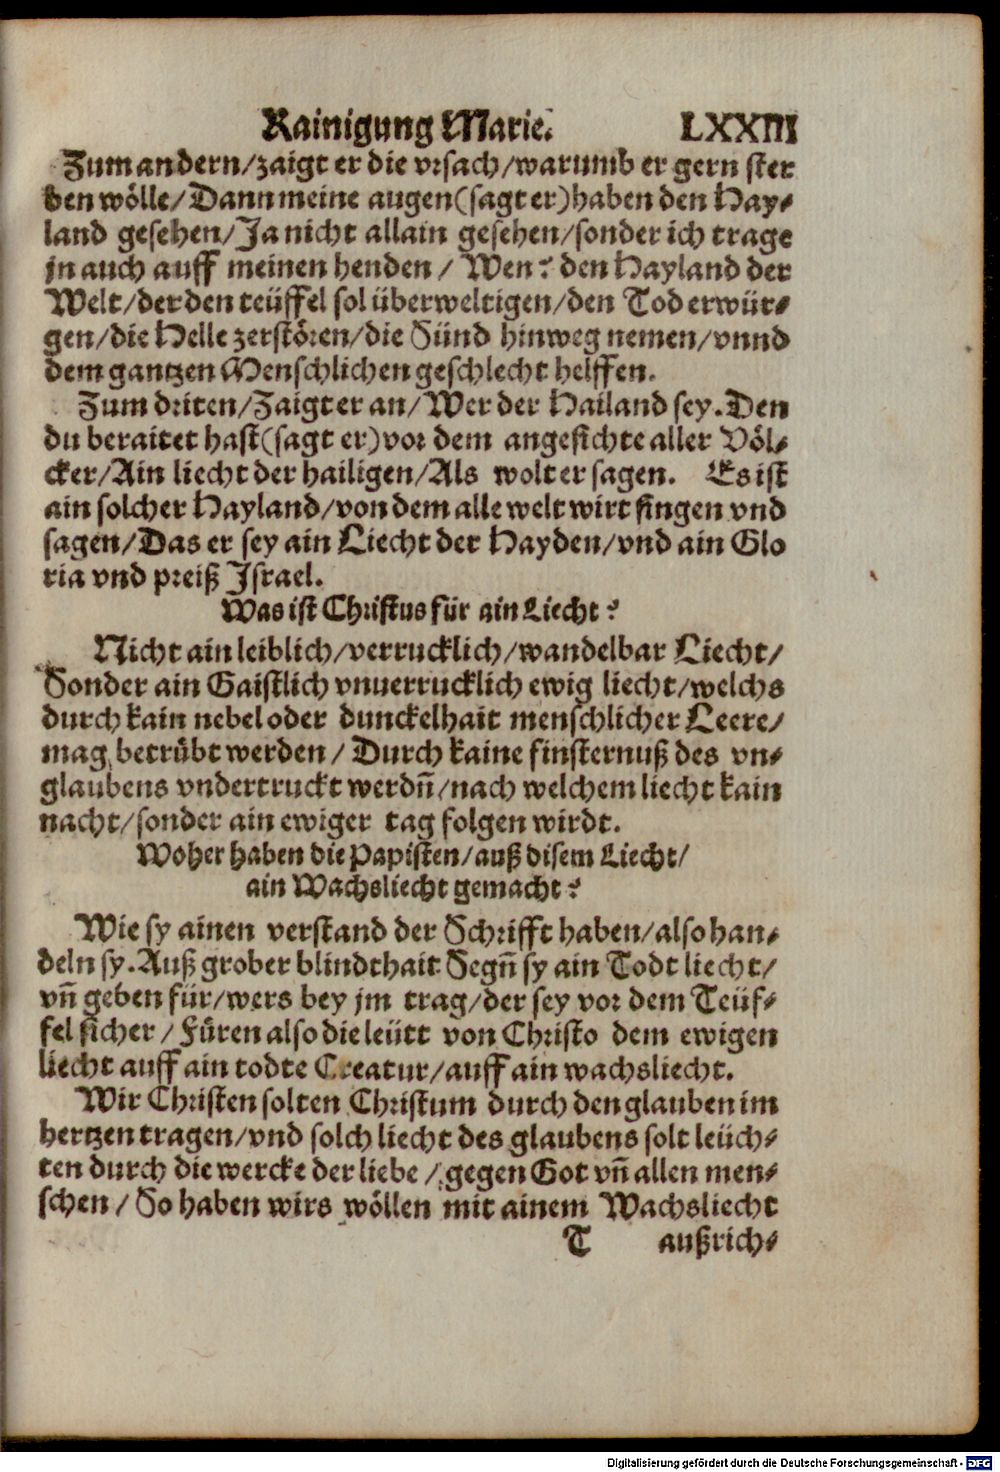 Rainigung Marie. LXXIII
Zum andern/zaigt er die vrsach/warumb er gern ster
ben wölle/Dann meine augen(sagt er)haben den Hay⸗
land gesehen/Ja nicht allain gesehen/sonder ich trage
jn auch auff meinen henden/ Wen? den Hayland der
Welt/der den teüffel sol überweltigen/den Tod erwür⸗
gen/die Helle zerstören/die Sünd hinweg nemen/vnnd
dem gantzen Menschlichen geschlecht helffen.
Zum driten/Zaigt er an/Wer der Hailand sey. Den
du beraitet hast(sagt er)vor dem angesichte aller Völ⸗
cker/Ain liecht der hailigen/Als wolt er sagen. Es ist
ain solcher Hayland/von dem alle welt wirt singen vnd
sagen/Das er sey ain Liecht der Hayden/vnd ain Glo
ria vnd preiß Israel.
Was ist Christus für ain Liecht?
Nicht ain leiblich/verrucklich/wandelbar Liecht/
Sonder ain Gaistlich vnuerrucklich ewig liecht/welchs
durch kain nebel oder dunckelhait menschlicher Leere/
mag betrübt werden/ Durch kaine finsternuß des vn⸗
glaubens vndertruckt werdn̄/nach welchem liecht kain
nacht/sonder ain ewiger tag folgen wirdt.
Woher haben die Papisten/auß disem Liecht/
ain Wachsliecht gemacht?
Wie sy ainen verstand der Schrifft haben/also han⸗
deln sy. Auß grober blindthait Segn̄ sy ain Todt liecht/
vn̄ geben für/wers bey jm trag/der sey vor dem Teüf⸗
fel sicher/Füren also die leütt von Christo dem ewigen
liecht auff ain todte Creatur/auff ain wachsliecht.
Wir Christen solten Christum durch den glauben im
hertzen tragen/vnd solch liecht des glaubens solt leüch⸗
ten durch die wercke der liebe/gegen Got vn̄ allen men⸗
schen/So haben wirs wöllen mit ainem Wachsliecht
T außrich⸗
Digitalisierung gefördert durch die Deutsche Forschungsgemeinschaft - DFG